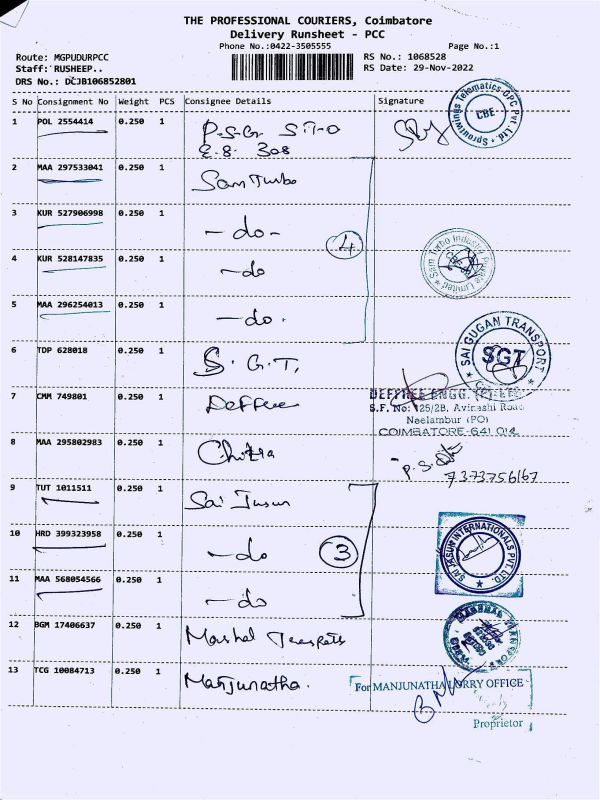 THE PROFESSIONAL COURIERS, Coimbatore
Delivery Runsheet - PCC
Phone No.:0422-3505555 Page No.:1
Route: MGPUDURPCC RS No.: 1068528
Staff: RUSHEEP.. RS Date: 29-Nov-2022
DRS No.: DCJB106852801
S No Consignment No Weight PCS Consignee Details Signature
1 POL 2554414 0.250 1 P.S.G. S.T.O
E.8. 308
Sproutwings Telematics OPC Pvt. Ltd. CBE
2 MAA 297533041 0.250 1 Sam Turbo
3 KUR 527906998 0.250 1 -do-
4
4 KUR 528147835 0.250 1 -do
Sam Turbo Industry Private Limited
5 MAA 296254013 0.250 1 -do.
6 TDP 628018 0.250 1 S.G.T.
SAI GUGAN TRANSPORT SGT
7 CMM 749801 0.250 1 Deffree
DEFFREE ENGG. (P) LTD
S.F. No: 125/2B, Avinashi Road
Neelambur (PO)
COIMBATORE-641 014
8 MAA 295802983 0.250 1 Chitra
7373756167
9 TUT 1011511 0.250 1 Sai Jasun
10 HRD 399323958 0.250 1 -do
3
SAI JASUN INTERNATIONALS PVT. LTD.
11 MAA 568054566 0.250 1 -do
12 BGM 17406637 0.250 1 Marshal Transports
13 TCG 10084713 0.250 1 Manjunatha.
For MANJUNATHA LORRY OFFICE
Proprietor